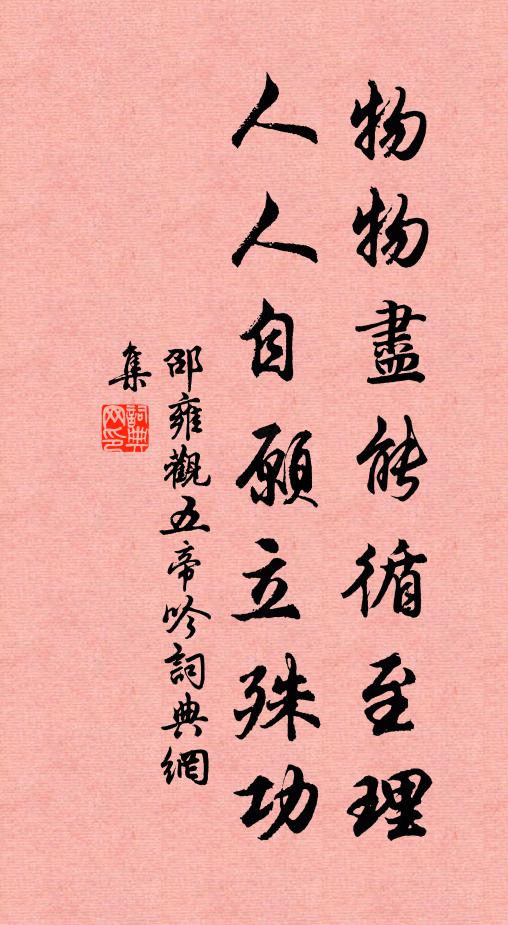 物物盡能循至理
人人自願立殊功
邵雍觀五帝吟詞典網
集
詞典
网印